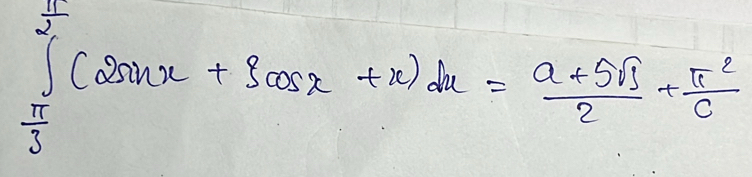 ∫_{π/3}^{π/2} (2sinx + 3cosx + x) dx = (a+5√3)/2 + π²/c